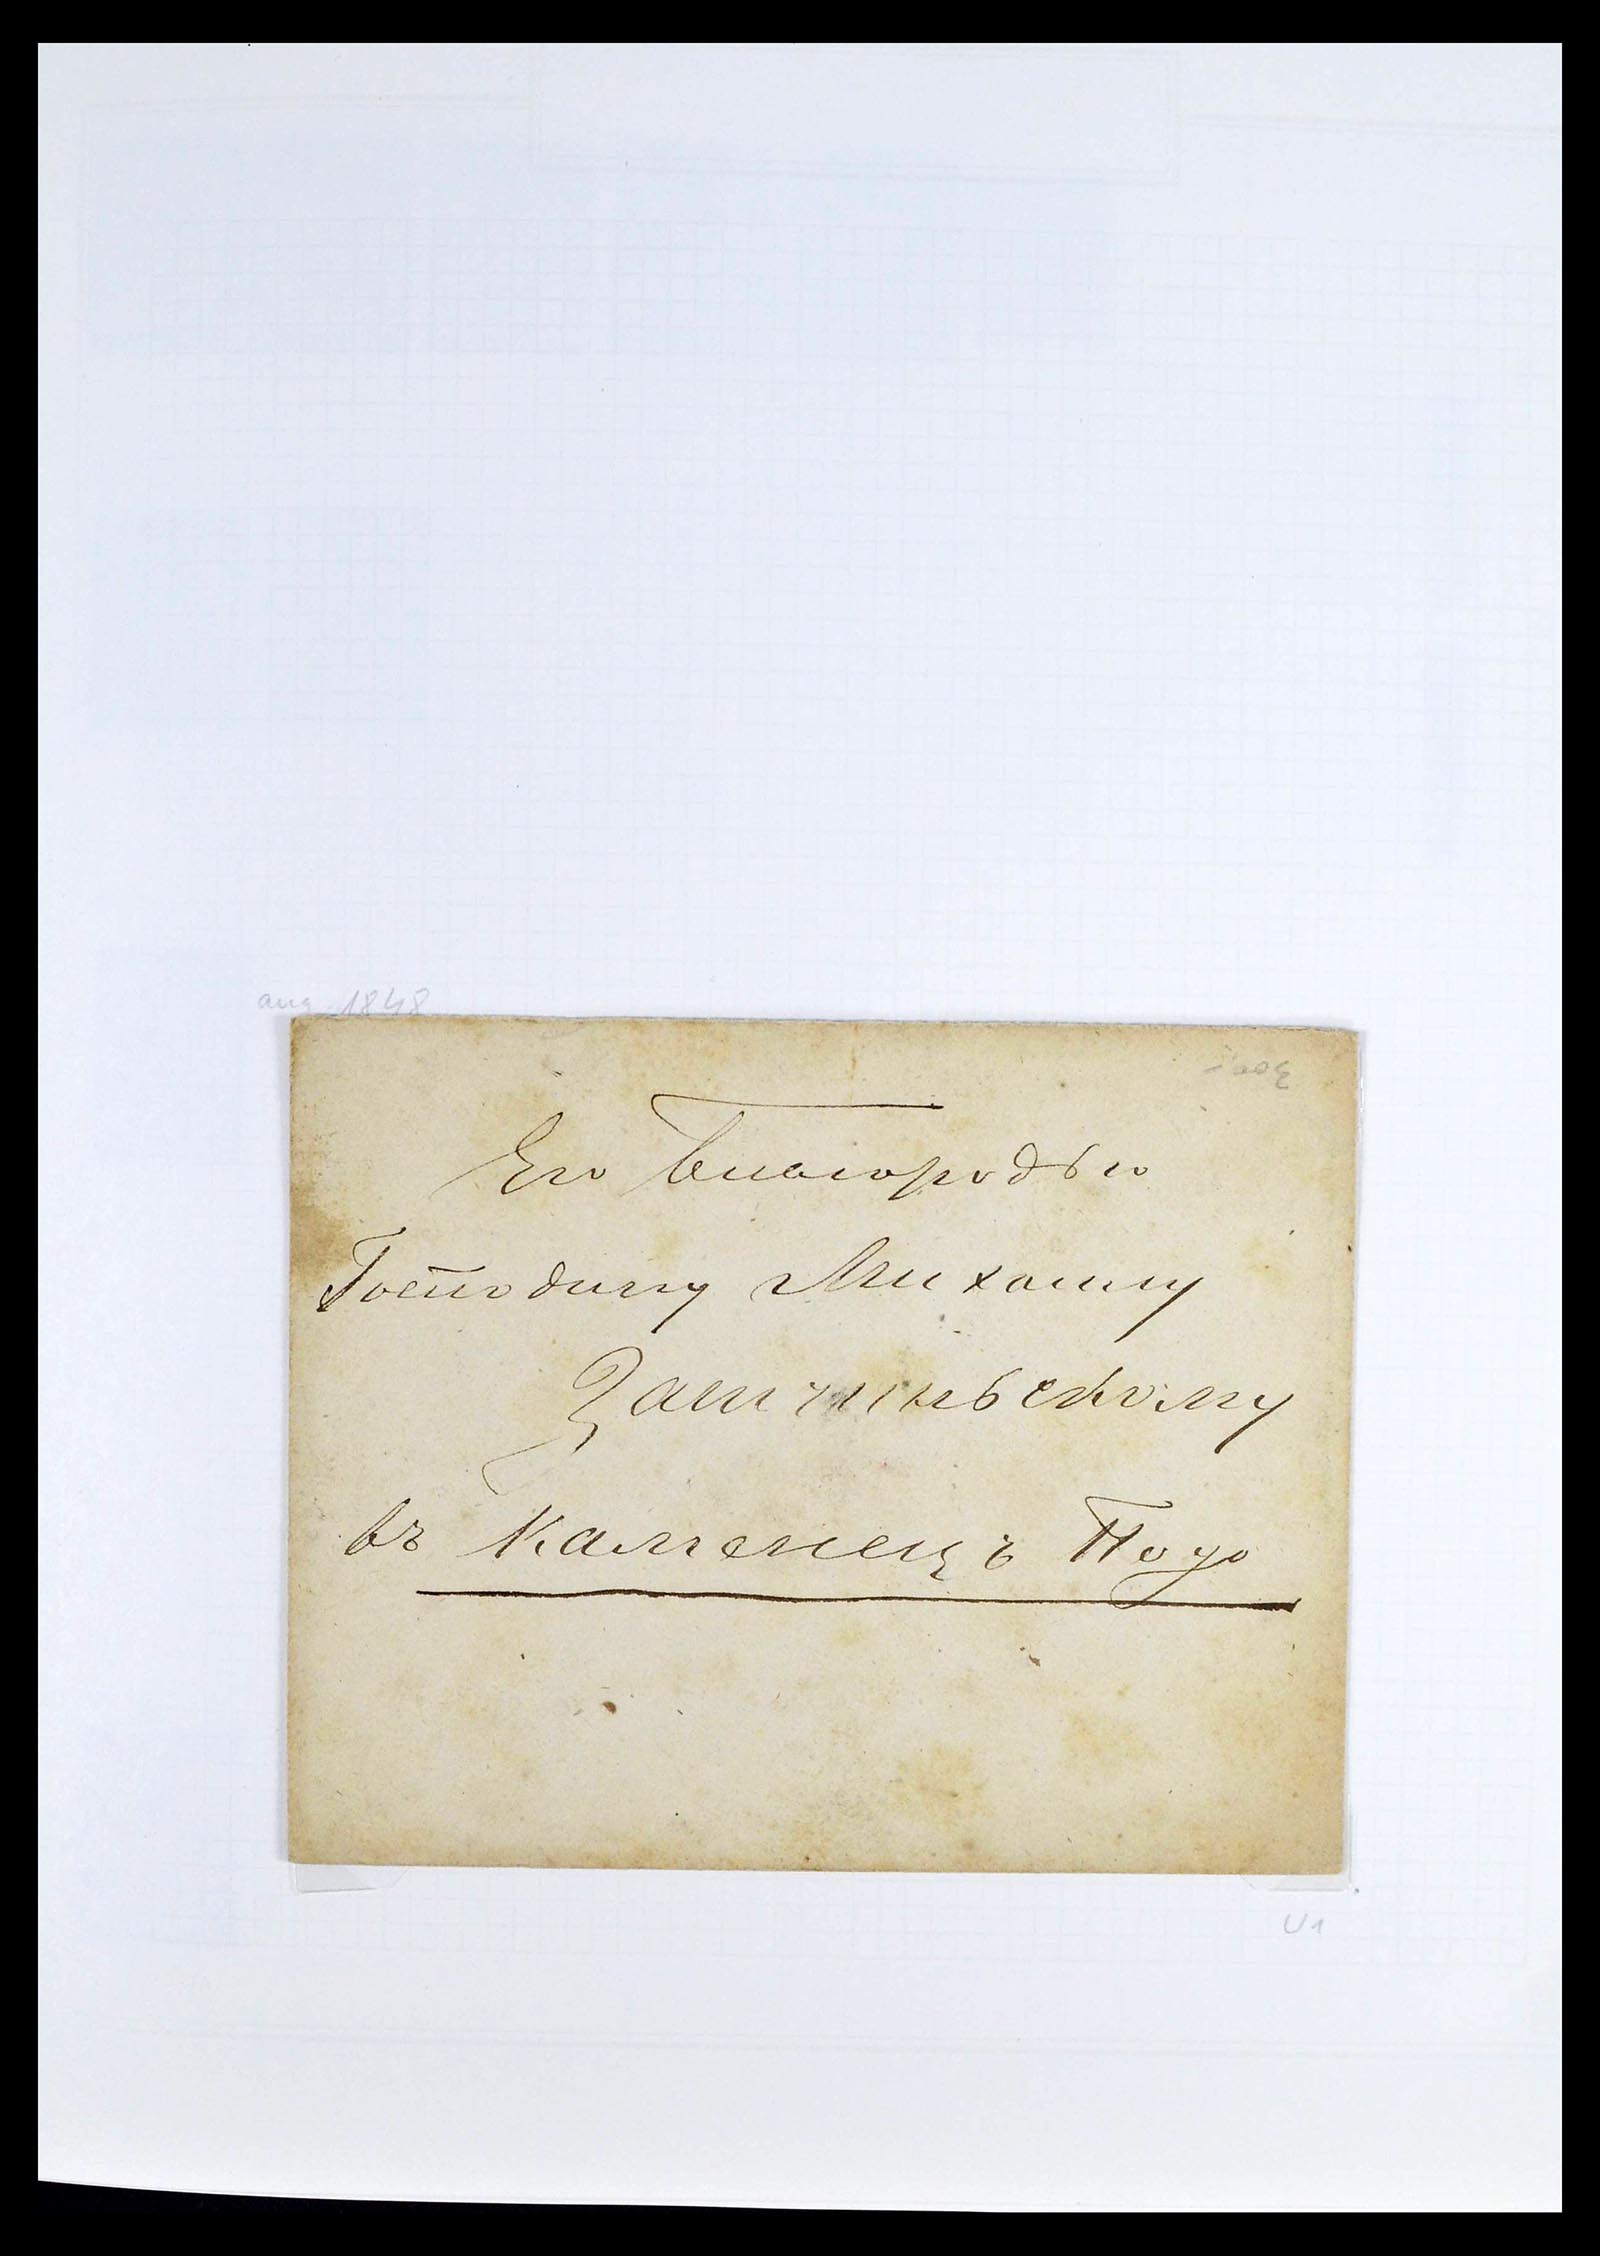 aug. 1848
300,-
Его Благородью
Господину Михаилу
въ Каменецъ Подо
U1